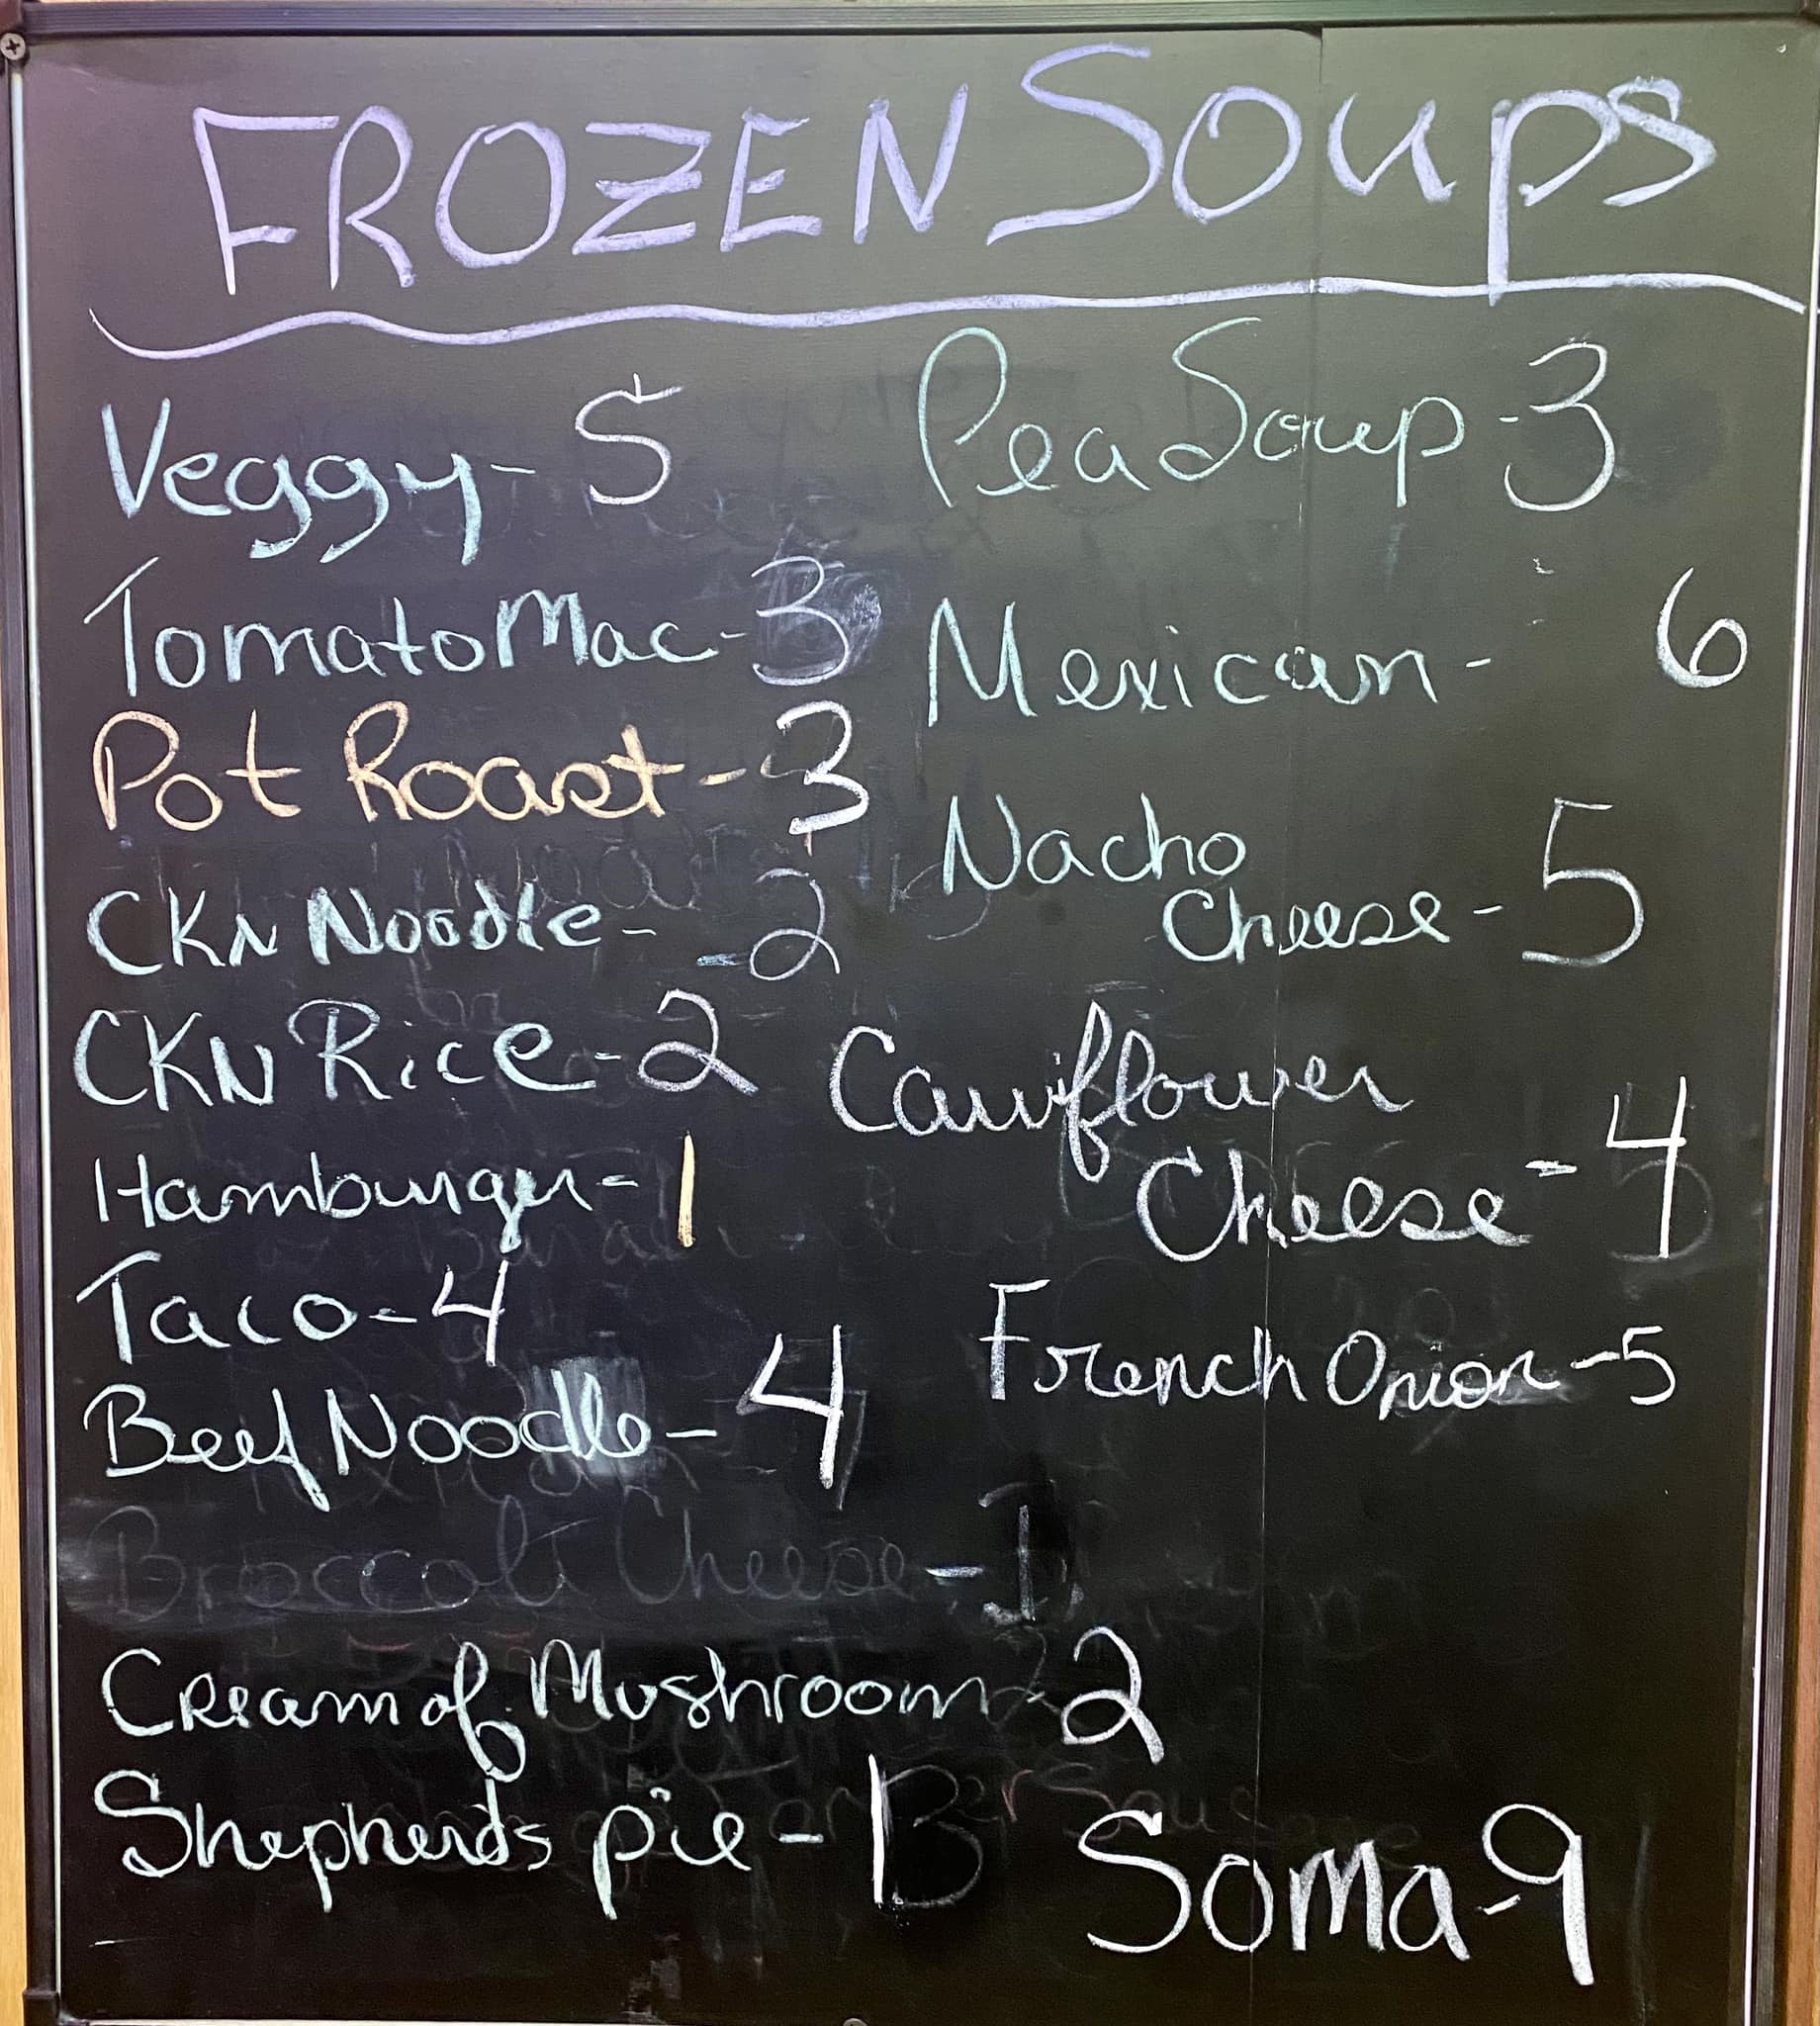 FROZEN Soups
Veggy - 5
Tomato Mac - 3
Pot Roast - 3
CKN Noodle - 2
CKN Rice - 2
Hamburger - 1
Taco - 4
Beef Noodle - 4
Broccoli Cheese - 1
Cream of Mushroom - 2
Shepherds pie - 1
Pea Soup - 3
Mexican - 6
Nacho
Cheese - 5
Cauiflower
Cheese - 4
French Onion - 5
Soma - 9